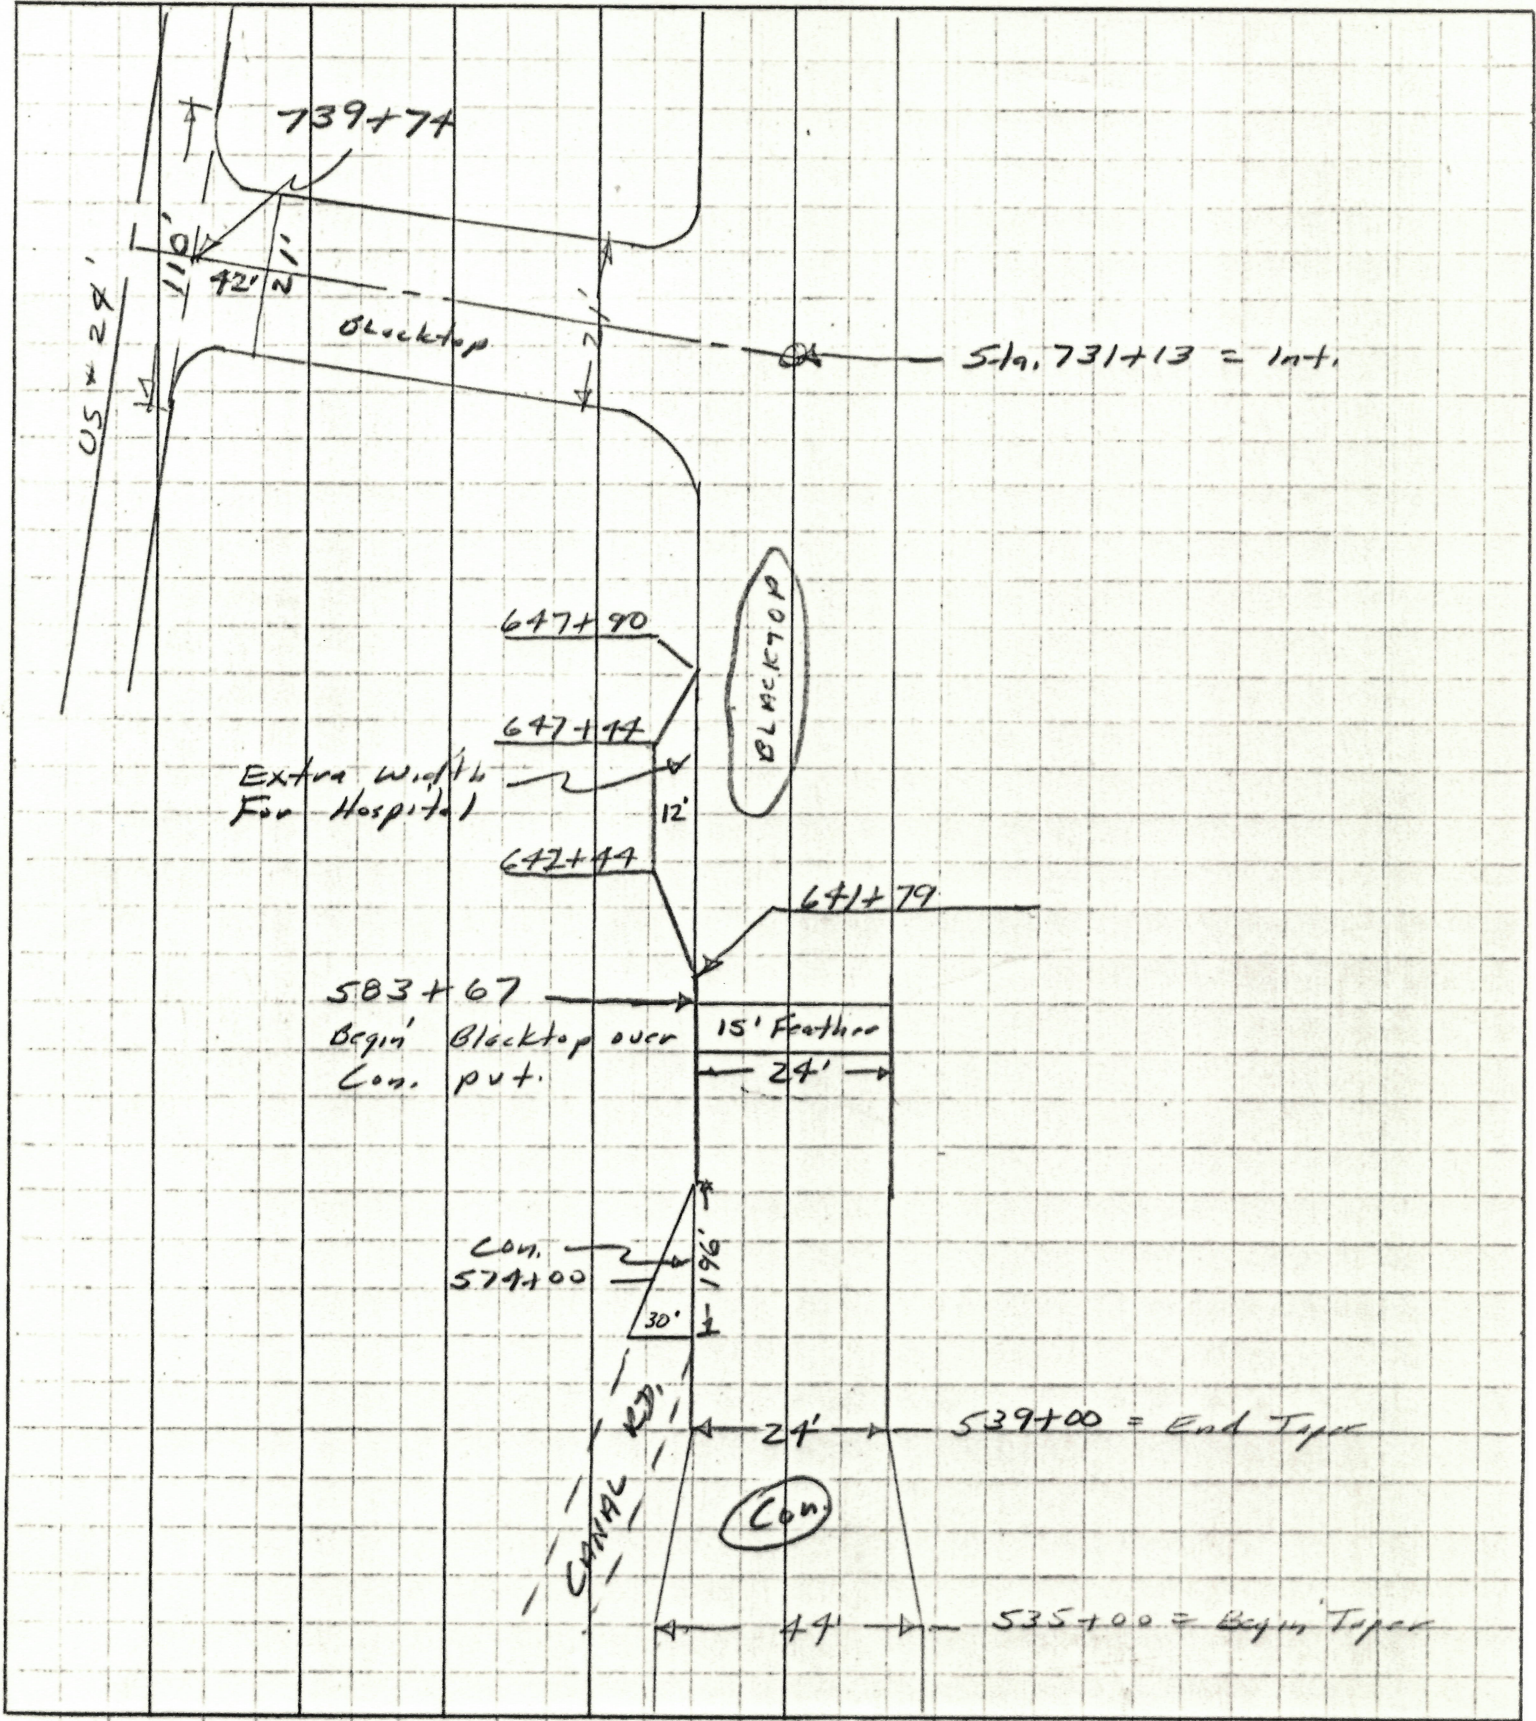 739+74
110'
42'
21'
US # 24
Blacktop
21'
Sta. 731+13 = Int.
BLACKTOP
647+90
647+44
Extra Width
For Hospital
12'
642+44
641+79
583+67
Begin Blacktop over
Con. pvt.
15' Feather
24'
Con.
574+00
196'
30'
CANAL RD.
24'
539+00 = End Taper
Con.
44'
535+00 = Begin Taper